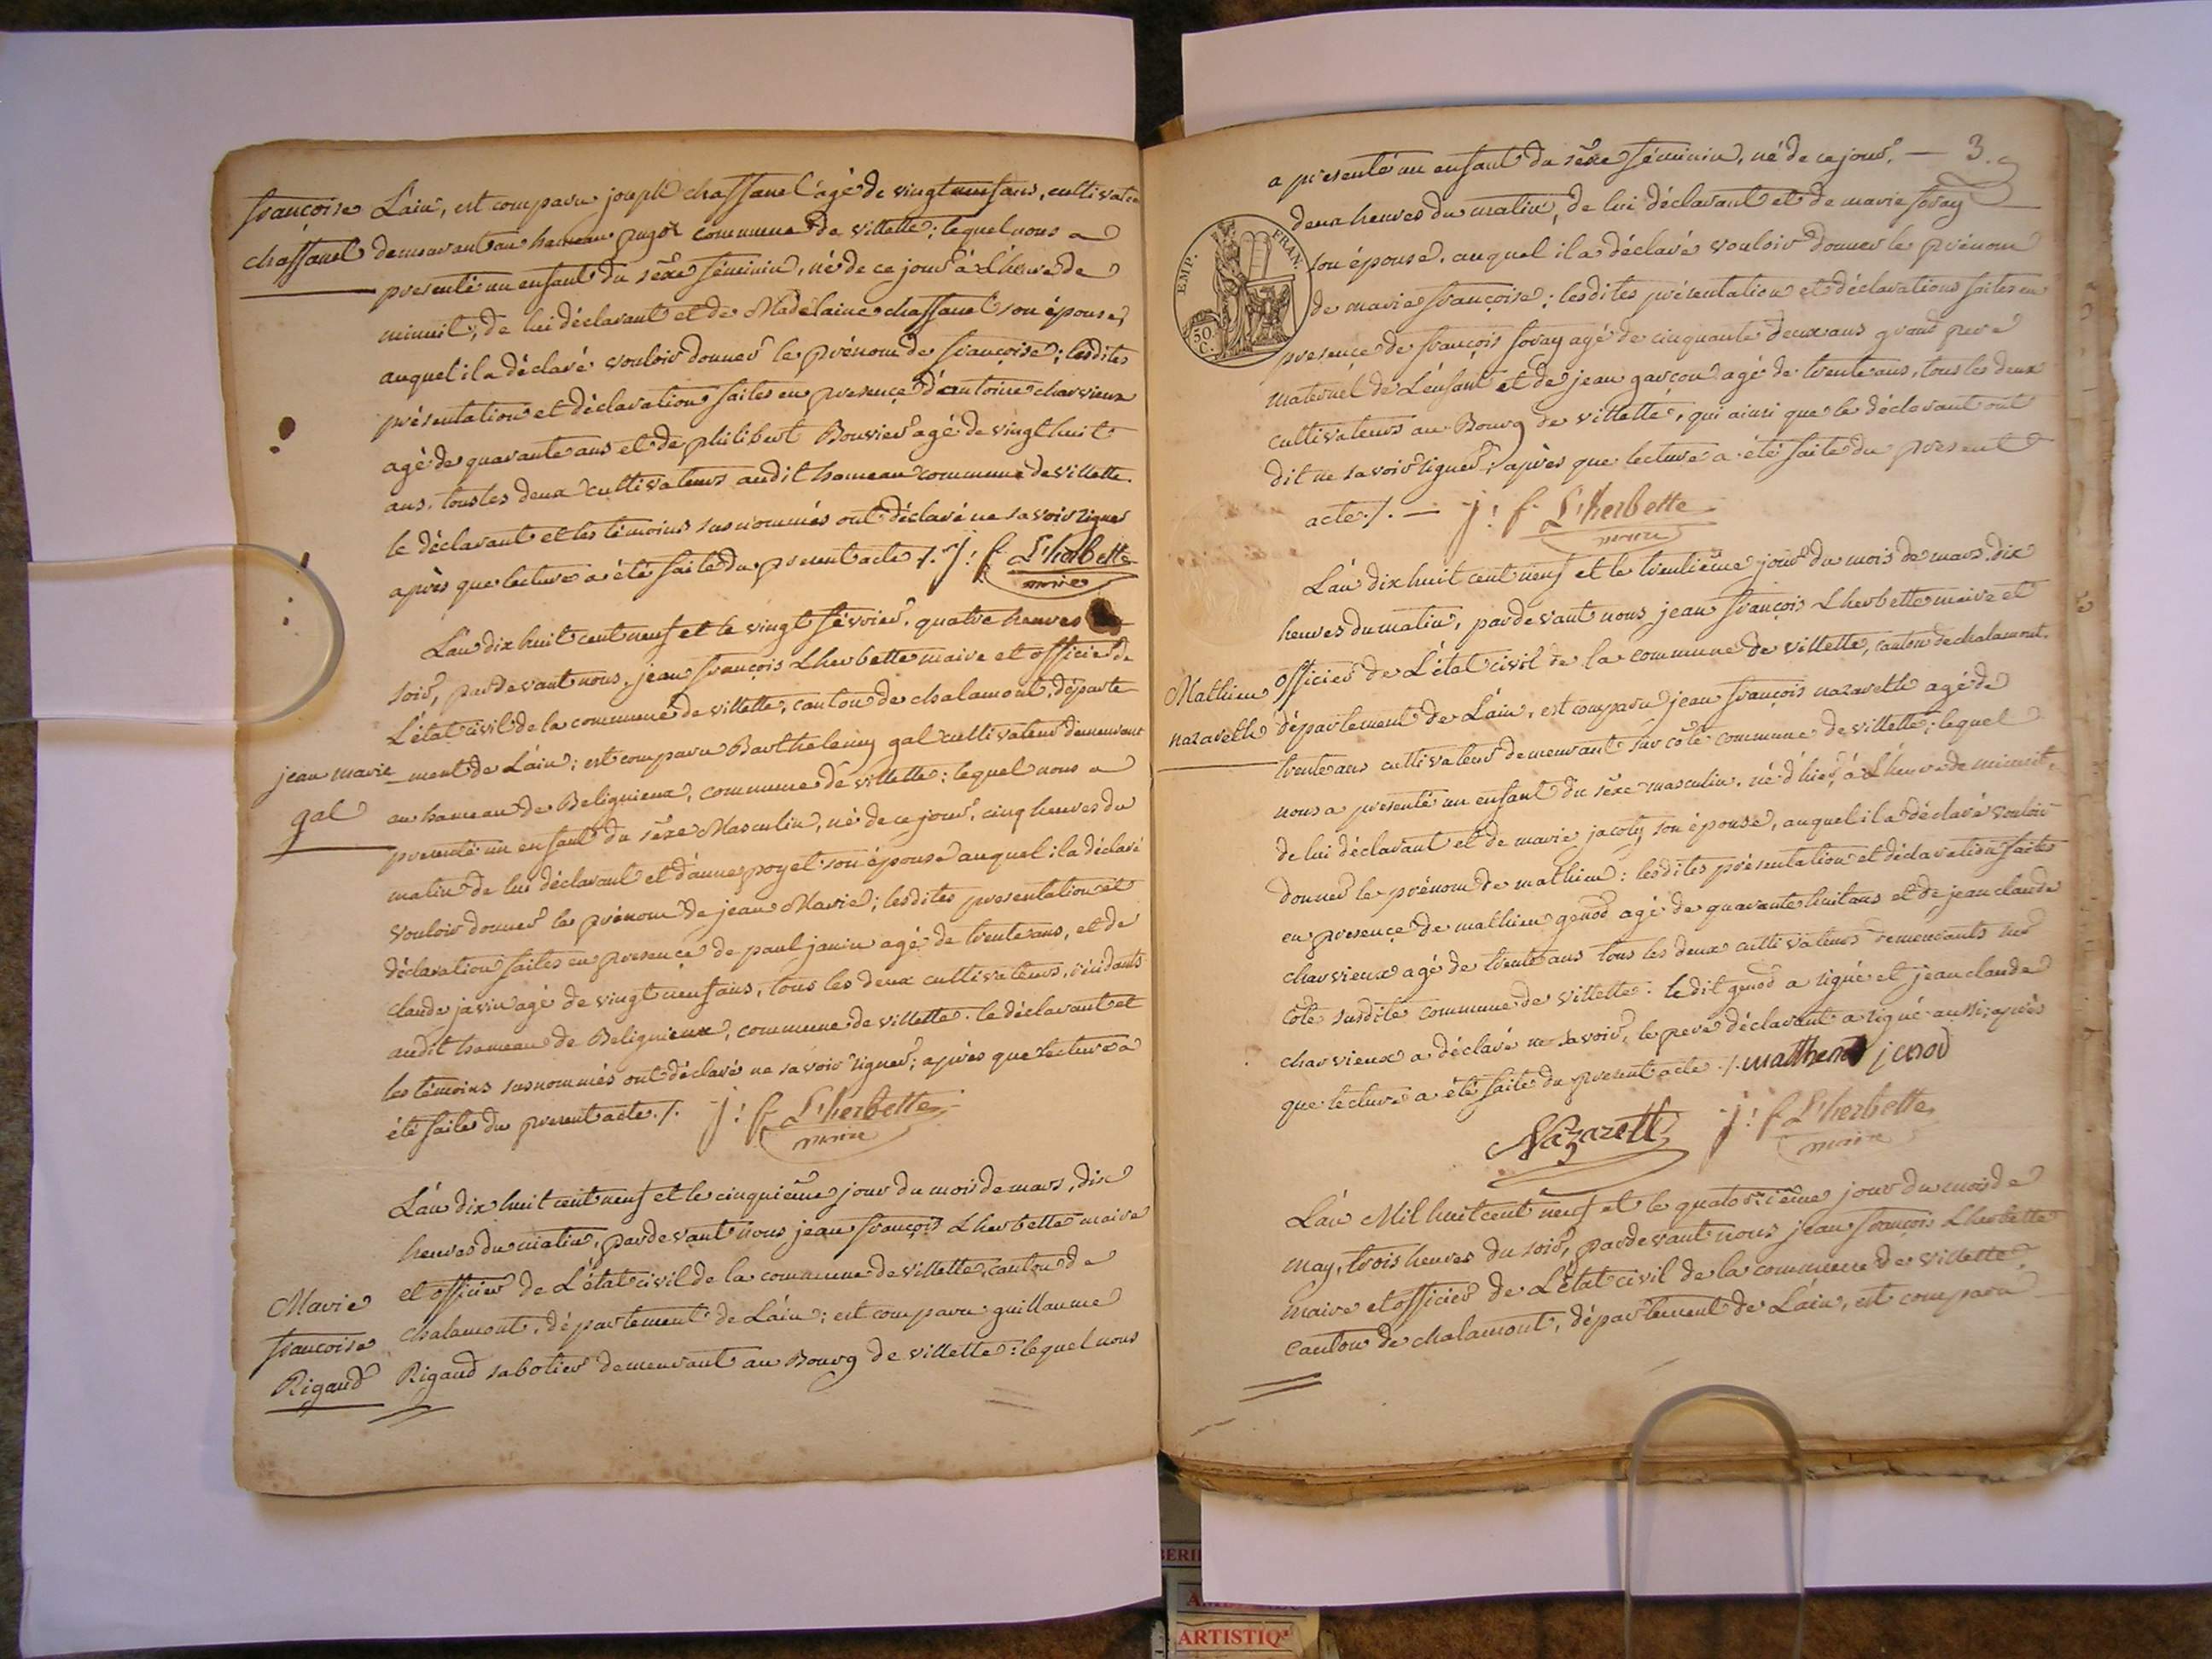 françoise
chassanel
L'ain, est comparu joseph chassanel agé de vingt neuf ans, cultivateur
demeurant au hameau pugoz commune de villette; lequel nous a
presenté un enfant du séxe féminin, né de ce jour à L'heure de
minuit, de lui déclarant et de Madelaine chassanel son épouse,
auquel il a déclaré vouloir donner le prénom de françoise; lesdites
présentation et déclaration faites en presence d'antoine charvieux
agé de quarante ans et de philibert Bouvier agé de vingt huit
ans. tous les deux cultivateurs audit hameau commune de villette.
le déclarant et les témoins susnommés ont déclaré ne savoir signer
après que lecture a été faite du present acte ./. j: f. L'herbette
maire
L'an dix huit cent neuf et le vingt février, quatre heures
soir, pardevant nous, jean françois Lherbette maire et officier de
L'état civil de la commune de villette, canton de chalamont, départe
jean marie
gal
ment de L'ain; est comparu Barthelemy gal cultivateur demeurant
au hameau de Beligneux, commune de villette; lequel nous a
presenté un enfant du séxe Masculin, né de ce jour, cinq heures du
matin de lui déclarant et d'anne poyet son épouse auquel il a déclaré
vouloir donner le prénom de jean Marie; lesdites presentation et
déclaration faites en presence de paul janin agé de trente ans, et de
claude javin agé de vingt neuf ans, tous les deux cultivateurs, résidants
audit hameau de Beligneux, commune de villette. le déclarant et
les témoins susnommés ont déclaré ne savoir signer; après que lecture a
été faite du present acte ./. j: f. L'herbette
maire
L'an dix huit cent neuf et le cinquième jour du mois de mars, dix
heures du matin, pardevant nous jean françois Lherbette maire
et officier de L'état civil de la commune de villette, canton de
Marie
françoise
Rigaud
chalamont, département de L'ain; est comparu guillaume
Rigaud sabotier demeurant au Bourg de villette: lequel nous
a presenté un enfant du séxe féminin, né de ce jour, — 3.
deux heures du matin, de lui déclarant et de marie foray
EMP. FRAN.
50 C.
son épouse, auquel il a déclaré vouloir donner le prénom
de marie françoise; lesdites présentation et déclarations faites en
presence de françois foray agé de cinquante deux ans grand pere
maternel de L'enfant et de jean garcon agé de trente ans, tous les deux
cultivateurs au Bourg de villette, qui ainsi que le déclarant ont
dit ne savoir signer; après que lecture a été faite du present
acte ./. — j: f. L'herbette
maire
L'an dix huit cent neuf et le trentième jour du mois de mars, dix
heures du matin, pardevant nous jean françois Lherbette maire et
officier de L'état civil de la commune de villette, canton de chalamont,
Mathieu
nazareth
département de L'ain, est comparu jean françois nazareth agé de
trente ans cultivateur demeurant sur côte commune de villette; lequel
nous a presenté un enfant du séxe masculin, né d'hier, à L'heure de minuit,
de lui déclarant et de marie jacoty son épouse, auquel il a déclaré vouloir
donner le prénom de mathieu: lesdites présentation et déclaration faites
en presence de mathieu genod agé de quarante huit ans et de jean claude
charvieux agé de trente ans tous les deux cultivateurs demeurants sur
côte susdite commune de villette. le dit genod a signé et jean claude
charvieux a déclaré ne savoir, le pere déclarant a signé aussi; après
que lecture a été faite du present acte ./. matthieu jenod
Nazareth j: f. L'herbette
maire
L'an Mil huit cent neuf et le quatorzième jour du mois de
may, trois heures du soir, pardevant nous jean françois Lherbette
maire et officier de L'état civil de la commune de villette,
canton de chalamont, département de L'ain, est comparu
ARTISTIQ